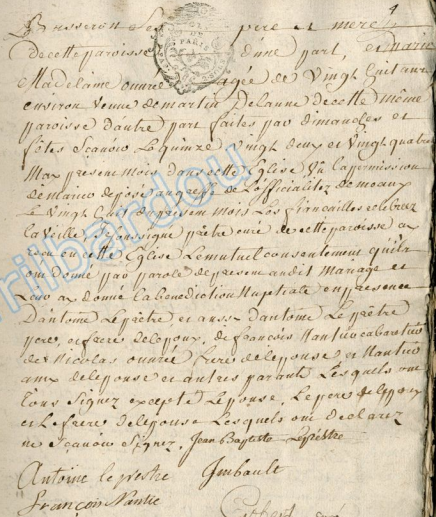 4
Busseron Ses pere et mere
de cette paroisse d'une part, et marie
Madelaine ouvré agée de vingt huit ans
environ veuve de martin Delanne de cette même
paroisse d'autre part faites par dimanches et
fêtes Scavoir Le quinze vingt deux et vingt quatre
May present mois dans cette Eglise Vu la permission
de mains deposé au greffe de L'officialitez de meaux
Le vingt huit du present mois Les fiançailles celebrez
la veille Je soussigné prêtre curé de cette paroisse ay
recu en cette Eglise Le mutuel consentement qu'ils
ont donné par parole de present audit Mariage et
Leur ay donné la benediction Nuptiale en presence
D'antoine Leprêtre et aussy d'antoine Leprêtre
pere, et frere de Lepoux, de françois Nantier cabaretier
de Nicolas ouvré frere de lepouse, et
de lepouse et autres parants Lesquels ont
tous Signez excepté Lepouse, Le pere de Lepoux
et Le frere de lepouse Lesquels ont declarez
ne Scavoir Signer, Jean Baptiste Leprêstre
Antoine leprestre Imbault
françois Nantie
rilbardou